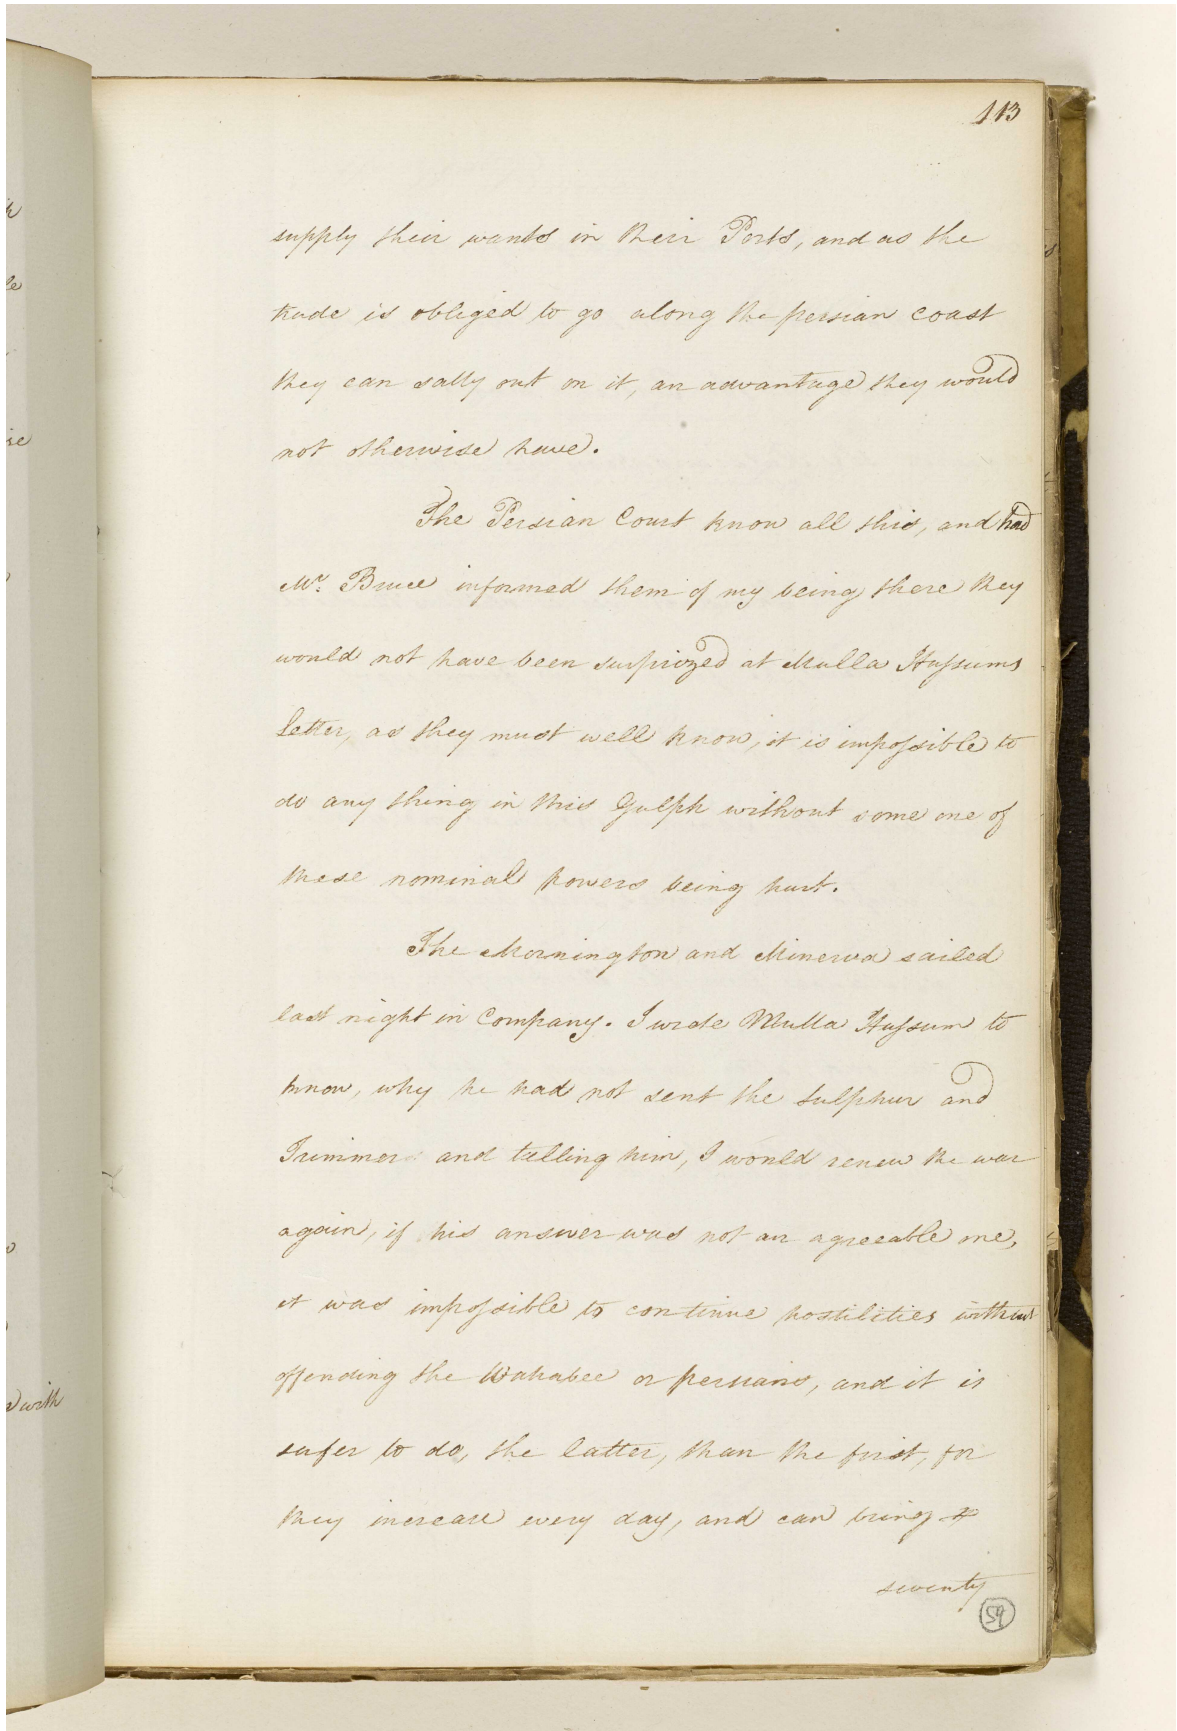 113
supply their wants in their Ports, and as the
trade is obliged to go along the persian coast
they can sally out on it, an advantage they would
not otherwise have.
The Persian Court know all this, and had
Mr. Bruce informed them of my being there they
would not have been surprized at Mulla Hussums
letter, as they must well know, it is impossible to
do any thing in this Gulph without some one of
these nominal powers being hurt.
The Mornington and Minerva sailed
last night in Company. I wrote Mulla Hussum to
know, why he had not sent the sulphur and
Trimmer and telling him, I would renew the war
again, if his answer was not an agreeable one,
it was impossible to continue hostilities without
offending the Wahabee or persians, and it is
safer to do, the latter, than the first, for
they increase every day, and can bring
seventy
59
with